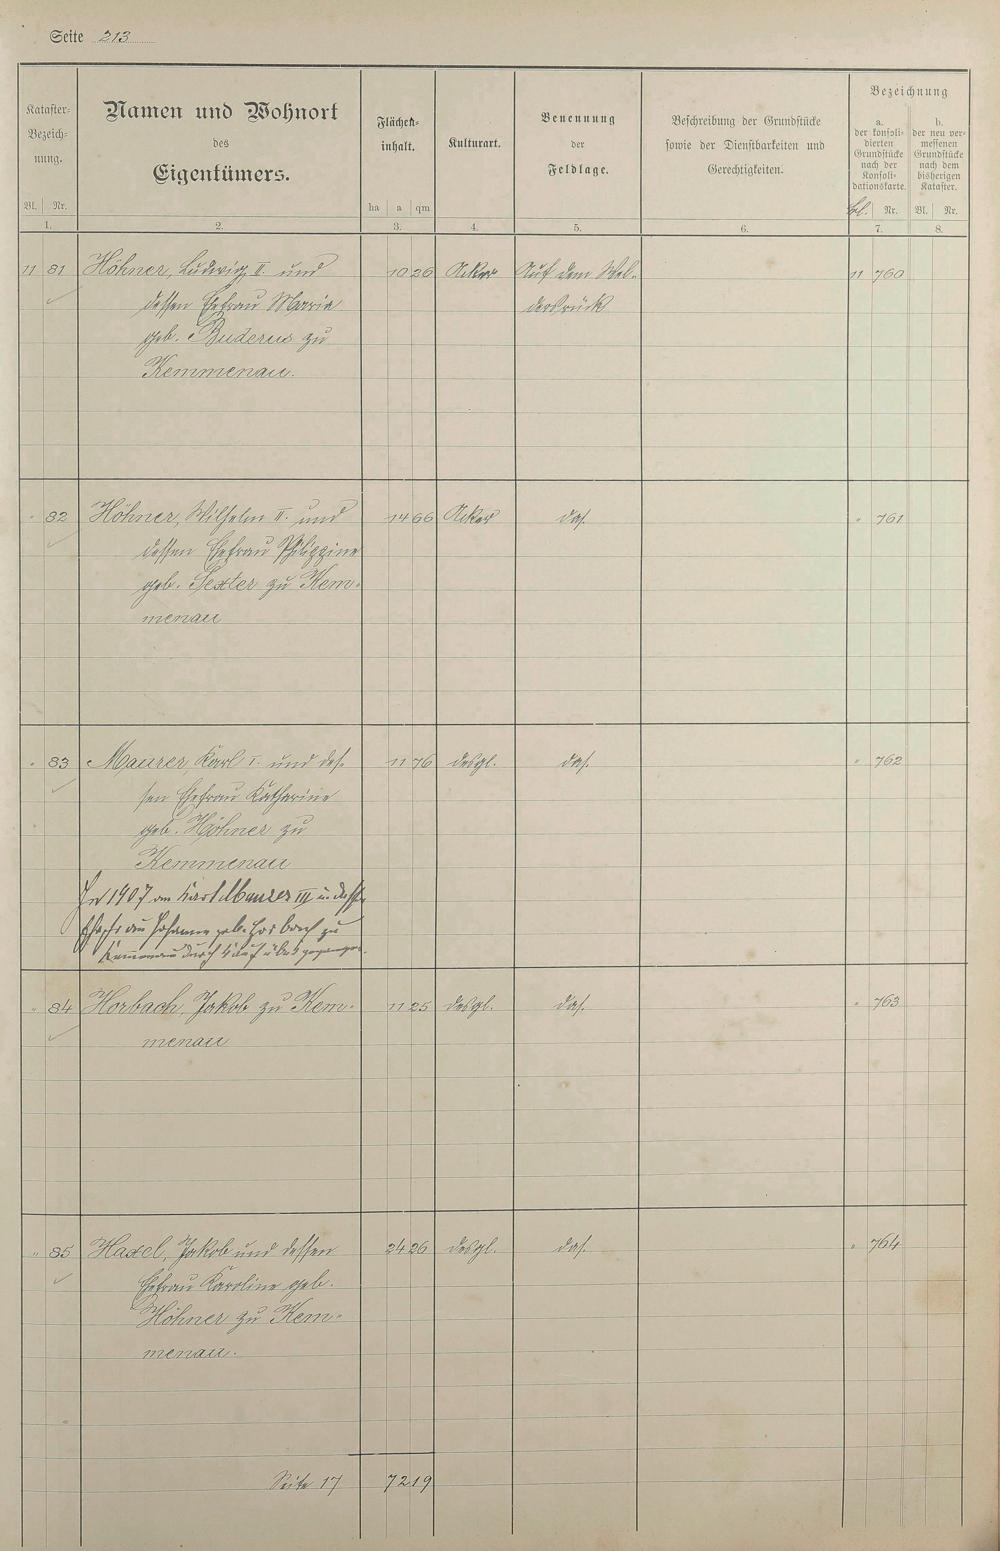 Seite 213
Kataster-
Bezeich-
nung.
Bl. Nr.
1.
Namen und Wohnort
des
Eigentümers.
2.
Flächen-
inhalt.
ha a qm
3.
Kulturart.
4.
Benennung
der
Feldlage.
5.
Beschreibung der Grundstücke
sowie der Dienstbarkeiten und
Gerechtigkeiten.
6.
Bezeichnung
a.
der konsoli-
dierten
Grundstücke
nach der
Konsoli-
dationskarte.
Bl. Nr.
7.
b.
der neu ver-
messenen
Grundstücke
nach dem
bisherigen
Kataster.
Bl. Nr.
8.
11 81 Höhner, Ludwig II. und 10 26 Acker Auf dem Wel- 11 760
dessen Ehefrau Maria dersrück
geb. Buderus zu
Kemmenau.
" 82 Höhner, Wilhelm II. und 14 66 Acker das. " 761
dessen Ehefrau Philippine
geb. Sexter zu Kem-
menau
" 83 Maurer, Karl I. und des- 11 76 desgl. das. " 762
sen Ehefrau Katharine
geb. Höhner zu
Kemmenau
1907 an Karl Maurer III
Ehefrau Johanna geb. Horbach zu
Kemmenau durch Kauf übergegangen.
" 84 Horbach, Jakob zu Kem- 11 25 desgl. das. " 763
menau
" 85 Haxel, Jakob und dessen 24 26 desgl. das. " 764
Ehefrau Karoline geb.
Höhner zu Kem-
menau.
Seite 17 72 19